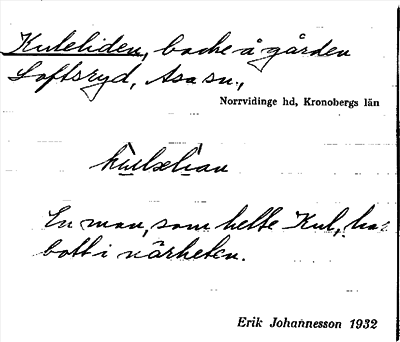 Kuleliden, backe å gården
Loftsryd, Asa sn.,
Norrvidinge hd, Kronobergs län
En man, som hette Kul, har
bott i närheten.
Erik Johannesson 1932